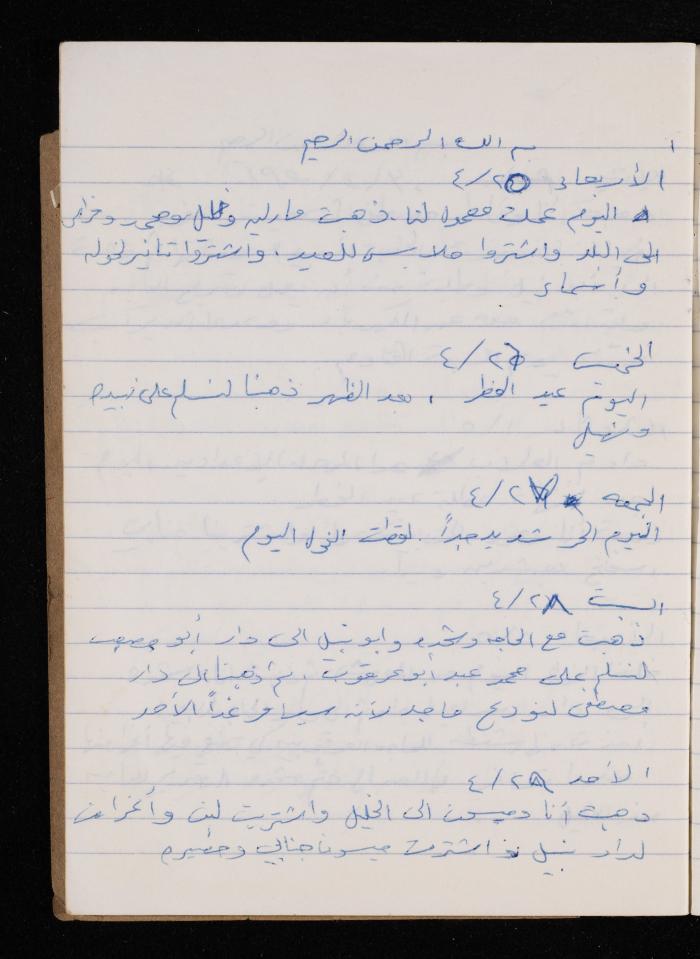 ١
بسم الله الرحمن الرحيم
الأربعاء ٤/٢٥
اليوم عملت معمول لنا. ذهبت ماريه
الى البلد واشتروا ملابس للعيد. واشتروا تنانير لخوله
وأسماء
الخميس ٤/٢٦
اليوم عيد الفطر . بعد الظهر ذهبنا لنسلم على زبيده
ونبيل
الجمعه ٤/٢٧
اليوم الحر شديد جداً. لقطت الفول اليوم
السبت ٤/٢٨
ذهبت مع الحاجه رشديه وابو نبيل الى دار أبو مصعب
لنسلم على محمد عبد أبو عرقوب. ثم ذهبنا الى دار
مصطفى لنودع ماجد لأنه سيسافر غداً الأحد
الأحد ٤/٢٨
ذهبت أنا وميسون الى الخليل واشتريت لبن وأغراض
لدار نبيل واشترت ميسون